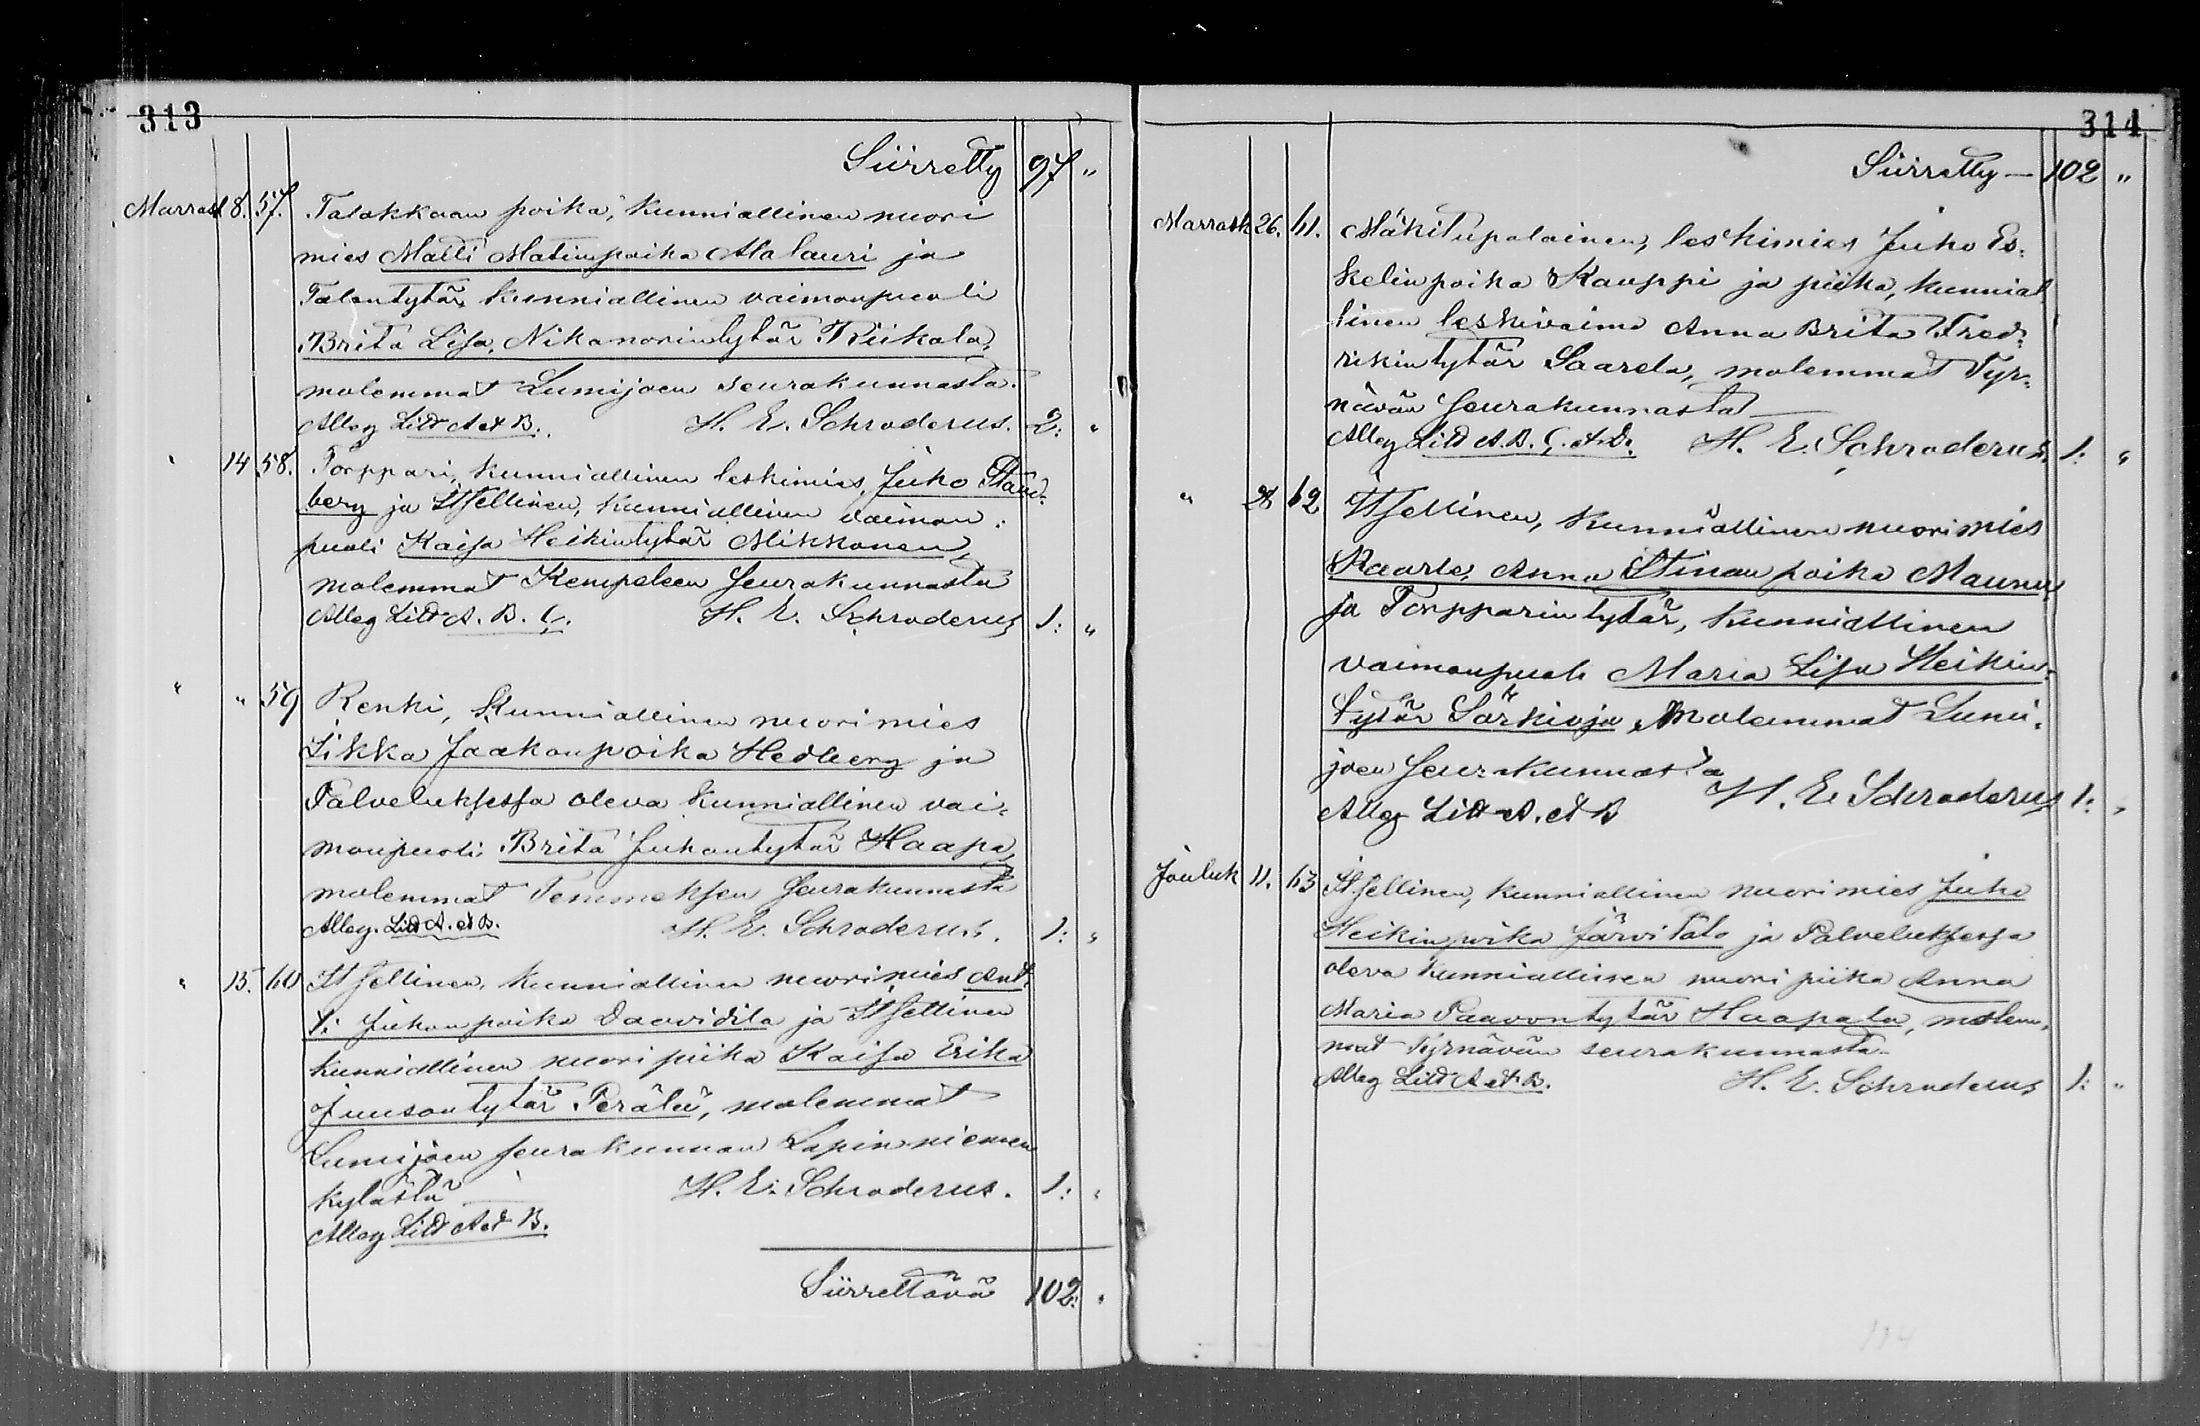 313
Siirretty 97 "
Marrask 8. 57. Talokkaan poika, kunniallinen nuori
mies Matti Matinpoika Alalauri ja
Talontytär, kunniallinen vaimonpuoli
Brita Lisa, Nikanorintytär Riikola,
molemmat Lumijoen seurakunnasta.
Alleg Litt A et B. H. E. Schroderus. 2: "
" 14. 58. Torppari, kunniallinen leskimies, Juho Stand-
berg ja Itsellinen, kunniallinen vaimon-
puoli Kaisa Heikintytär Mikkonen,
molemmat Kempeleen seurakunnasta
Alleg Litt A. B. C. H. E. Schroderus 1: "
" " 59 Renki, kunniallinen nuori mies
Liikka Jaakonpoika Hedberg ja
Palveluksessa oleva kunniallinen vai-
monpuoli Brita Juhontytär Haapa,
molemmat Temmeksen seurakunnasta
Alleg. Litt A. et B. H. E. Schroderus. 1: "
" 15. 60 Itsellinen, kunniallinen nuori mies Ant-
ti Juhonpoika Daavidila ja Itsellinen
kunniallinen nuori piika Kaisa Erika
Juusontytär Perälä, molemmat
Lumijoen seurakunnan Lapinniemen
kylästä H. E. Schroderus. 1: "
Alleg Litt A et B.
Siirrettävä 102: "
314
Siirretty — 102 "
Marrask 26. 61. Mäkitupalainen, leskimies Juho Es-
kelinpoika Kauppi ja piika, kunnial
linen leskivaimo Anna Brita Fred-
rikintytär Saarela, molemmat Tyr-
nävän seurakunnasta
Alleg Litt A. B. C. et D. H. E. Schroderus. 1: "
" 28 62 Itsellinen, kunniallinen nuori mies
Kaarle, Anna Stinan poika Maunu
ja Torpparintytär, kunniallinen
vaimonpuoli Maria Lisa Heikin-
tytär Särkioja, molemmat Lumi-
joen seurakunnasta
Alleg Litt A. et B H. E. Schroderus 1: "
Jouluk 11. 63 Itsellinen, kunniallinen nuori mies Juho
Heikinpoika Järvitalo ja Palveluksessa
oleva kunniallinen nuori piika Anna
Maria Paavontytär Haapala, molem-
mat Tyrnävän seurakunnasta
Alleg Litt A et B. H. E. Schroderus 1: "